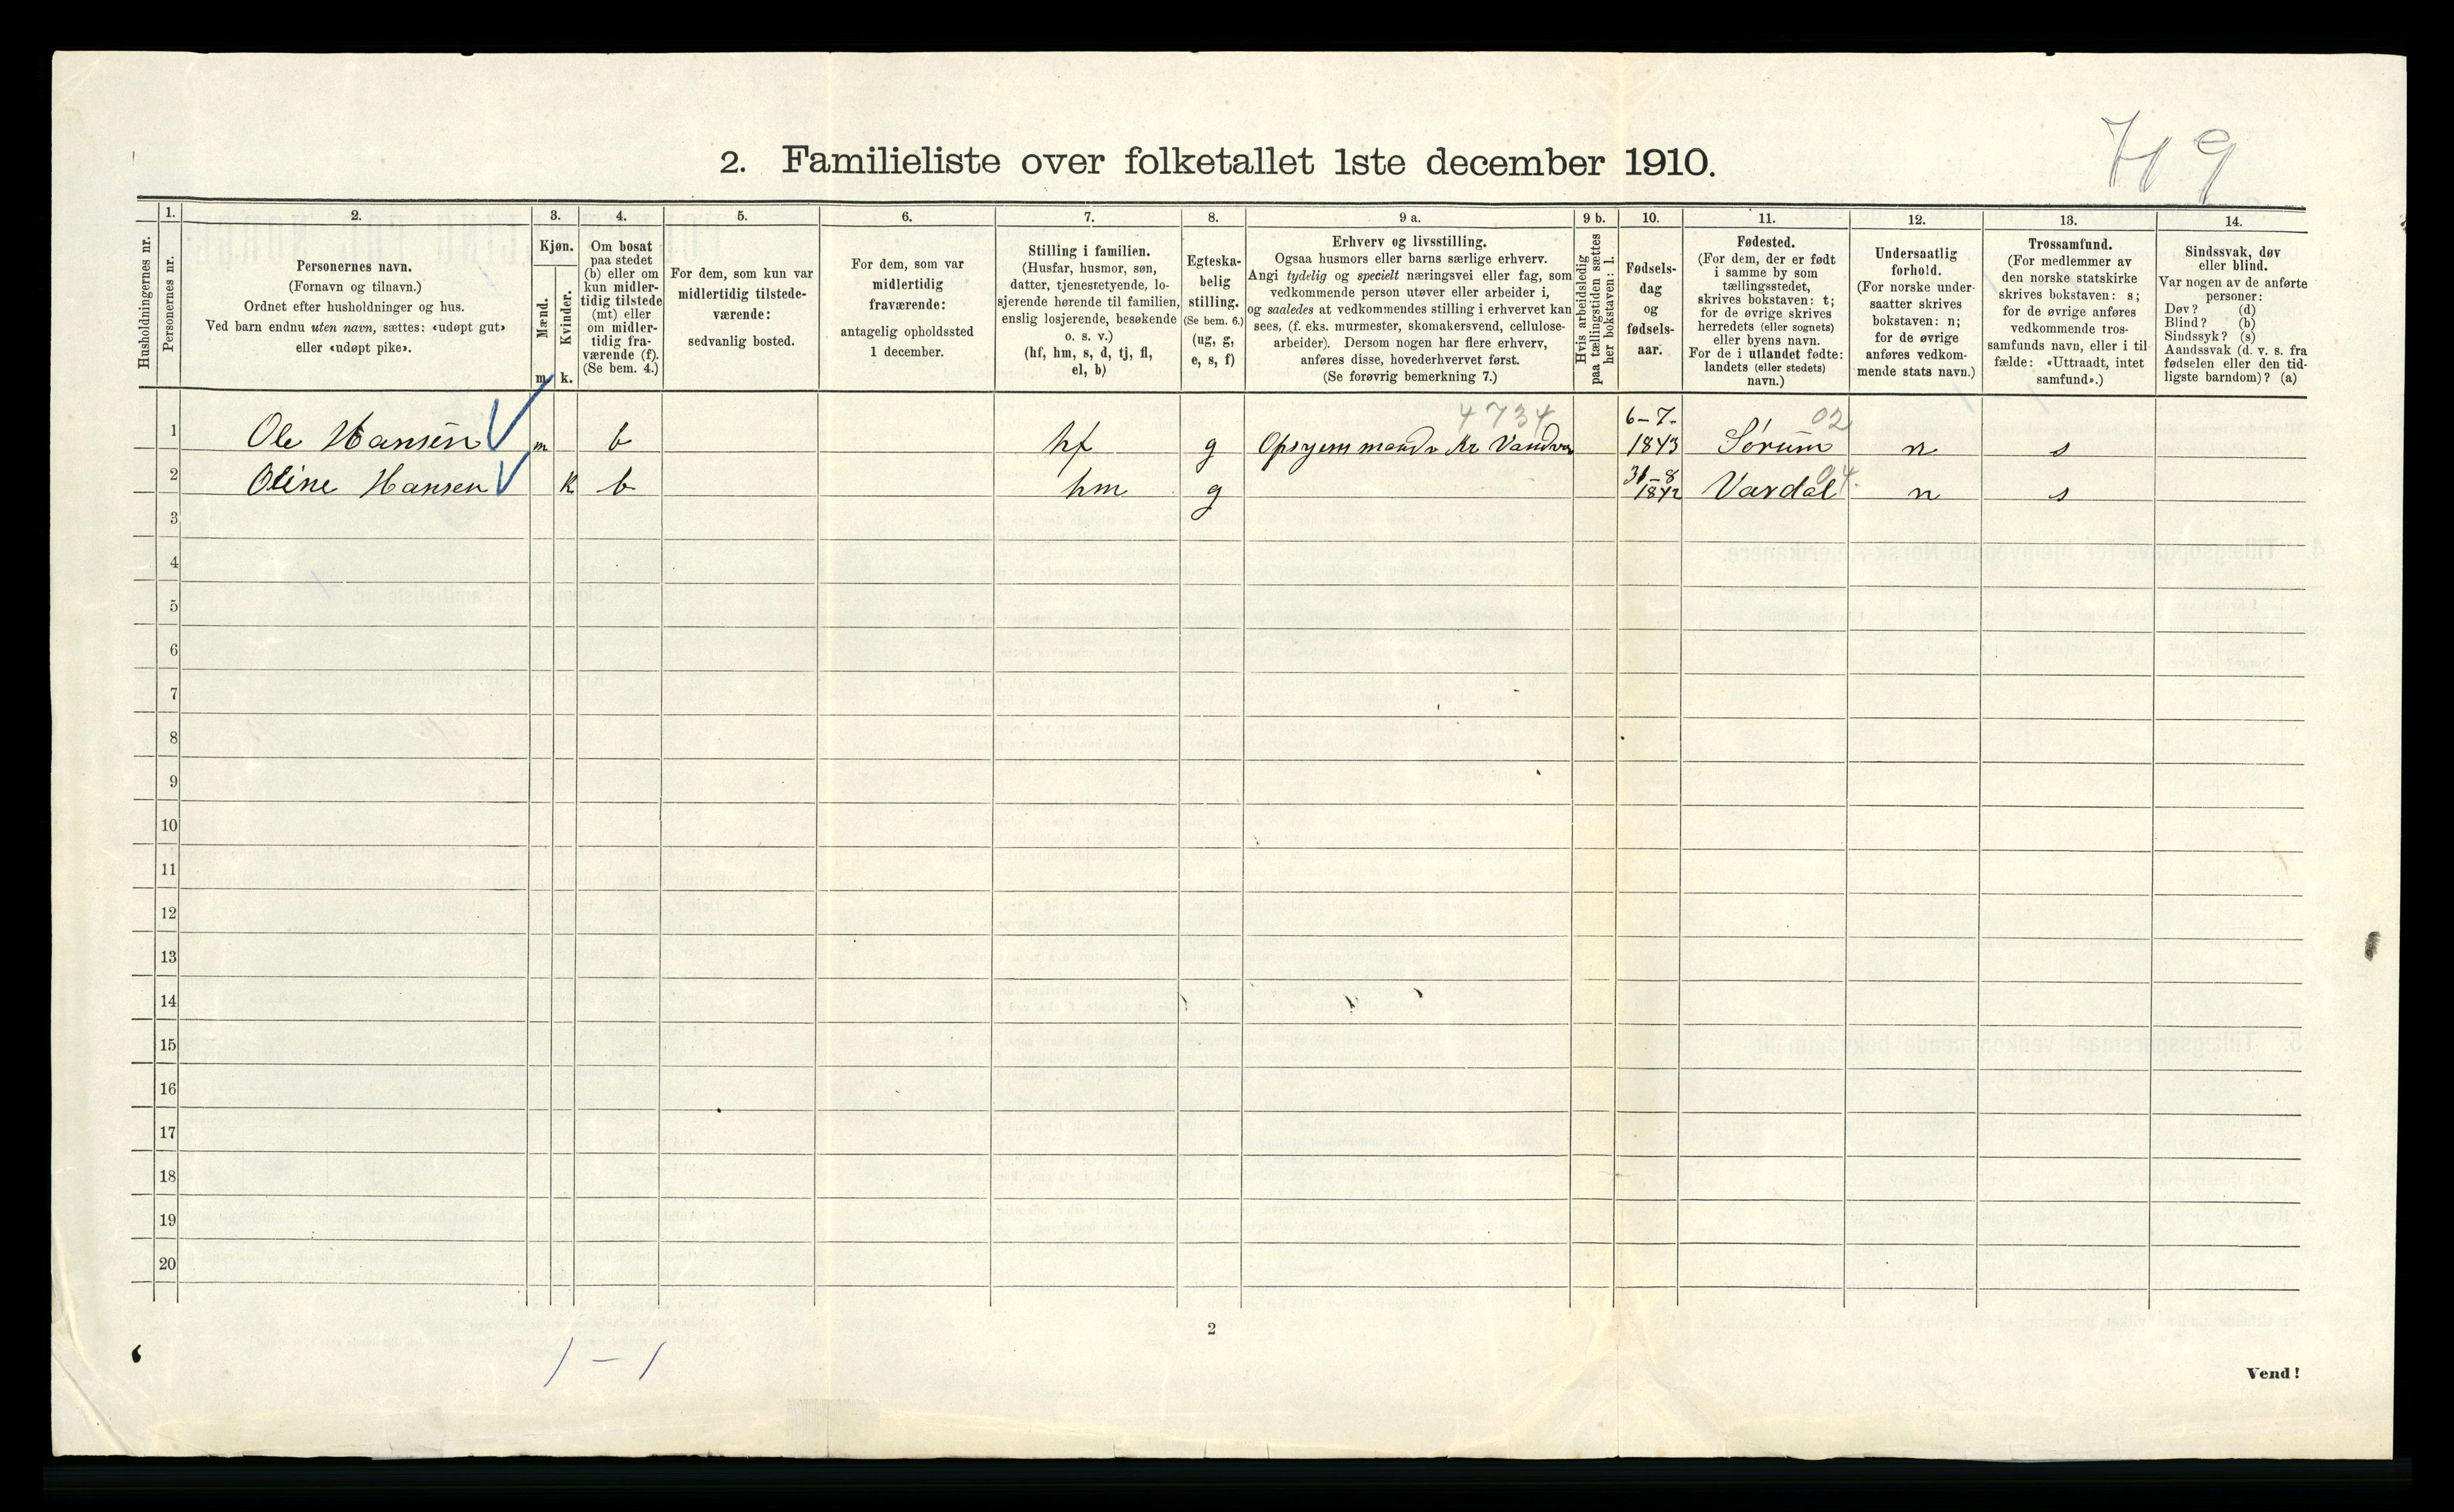 749
2. Familieliste over folketallet 1ste december 1910.
1. 2. 3. 4. 5. 6. 7. 8. 9 a. 9 b. 10. 11. 12. 13. 14.
Husholdningernes nr.
Personernes nr.
Personernes navn.
(Fornavn og tilnavn.)
Ordnet efter husholdninger og hus.
Ved barn endnu uten navn, sættes: «udøpt gut»
eller «udøpt pike».
Kjøn.
Mænd.
Kvinder.
m. k.
Om bosat
paa stedet
(b) eller om
kun midler-
tidig tilstede
(mt) eller
om midler-
tidig fra-
værende (f).
(Se bem. 4.)
For dem, som kun var
midlertidig tilstede-
værende:
sedvanlig bosted.
For dem, som var
midlertidig
fraværende:
antagelig opholdssted
1 december.
Stilling i familien.
(Husfar, husmor, søn,
datter, tjenestetyende, lo-
sjerende hørende til familien,
enslig losjerende, besøkende
o. s. v.)
(hf, hm, s, d, tj, fl,
el, b)
Egteska-
belig
stilling.
(Se bem. 6.)
(ug, g,
e, s, f)
Erhverv og livsstilling.
Ogsaa husmors eller barns særlige erhverv.
Angi tydelig og specielt næringsvei eller fag, som
vedkommende person utøver eller arbeider i,
og saaledes at vedkommendes stilling i erhvervet kan
sees, (f. eks. murmester, skomakersvend, cellulose-
arbeider). Dersom nogen har flere erhverv,
anføres disse, hovederhvervet først.
(Se forøvrig bemerkning 7.)
Hvis arbeidsledig
paa tællingstiden sættes
her bokstaven: l.
Fødsels-
dag
og
fødsels-
aar.
Fødested.
(For dem, der er født
i samme by som
tællingsstedet,
skrives bokstaven: t;
for de øvrige skrives
herredets (eller sognets)
eller byens navn.
For de i utlandet fødte:
landets (eller stedets)
navn.)
Undersaatlig
forhold.
(For norske under-
saatter skrives
bokstaven: n;
for de øvrige
anføres vedkom-
mende stats navn.)
Trossamfund.
(For medlemmer av
den norske statskirke
skrives bokstaven: s;
for de øvrige anføres
vedkommende tros-
samfunds navn, eller i til-
fælde: «Uttraadt, intet
samfund».)
Sindssvak, døv
eller blind.
Var nogen av de anførte
personer:
Døv? (d)
Blind? (b)
Sindssyk? (s)
Aandssvak (d. v. s. fra
fødselen eller den tid-
ligste barndom)? (a)
4734 6-7- 02
1 Ole Hansen m b hf g Kr 1843 Sørum n s
31-8 04.
2 Oline Hansen k b hm g 1842 Vardal n s
3
4
5
6
7
8
9
10
11
12
13
14
15
16
17
18
19
20
2
1 - 1
Vend!